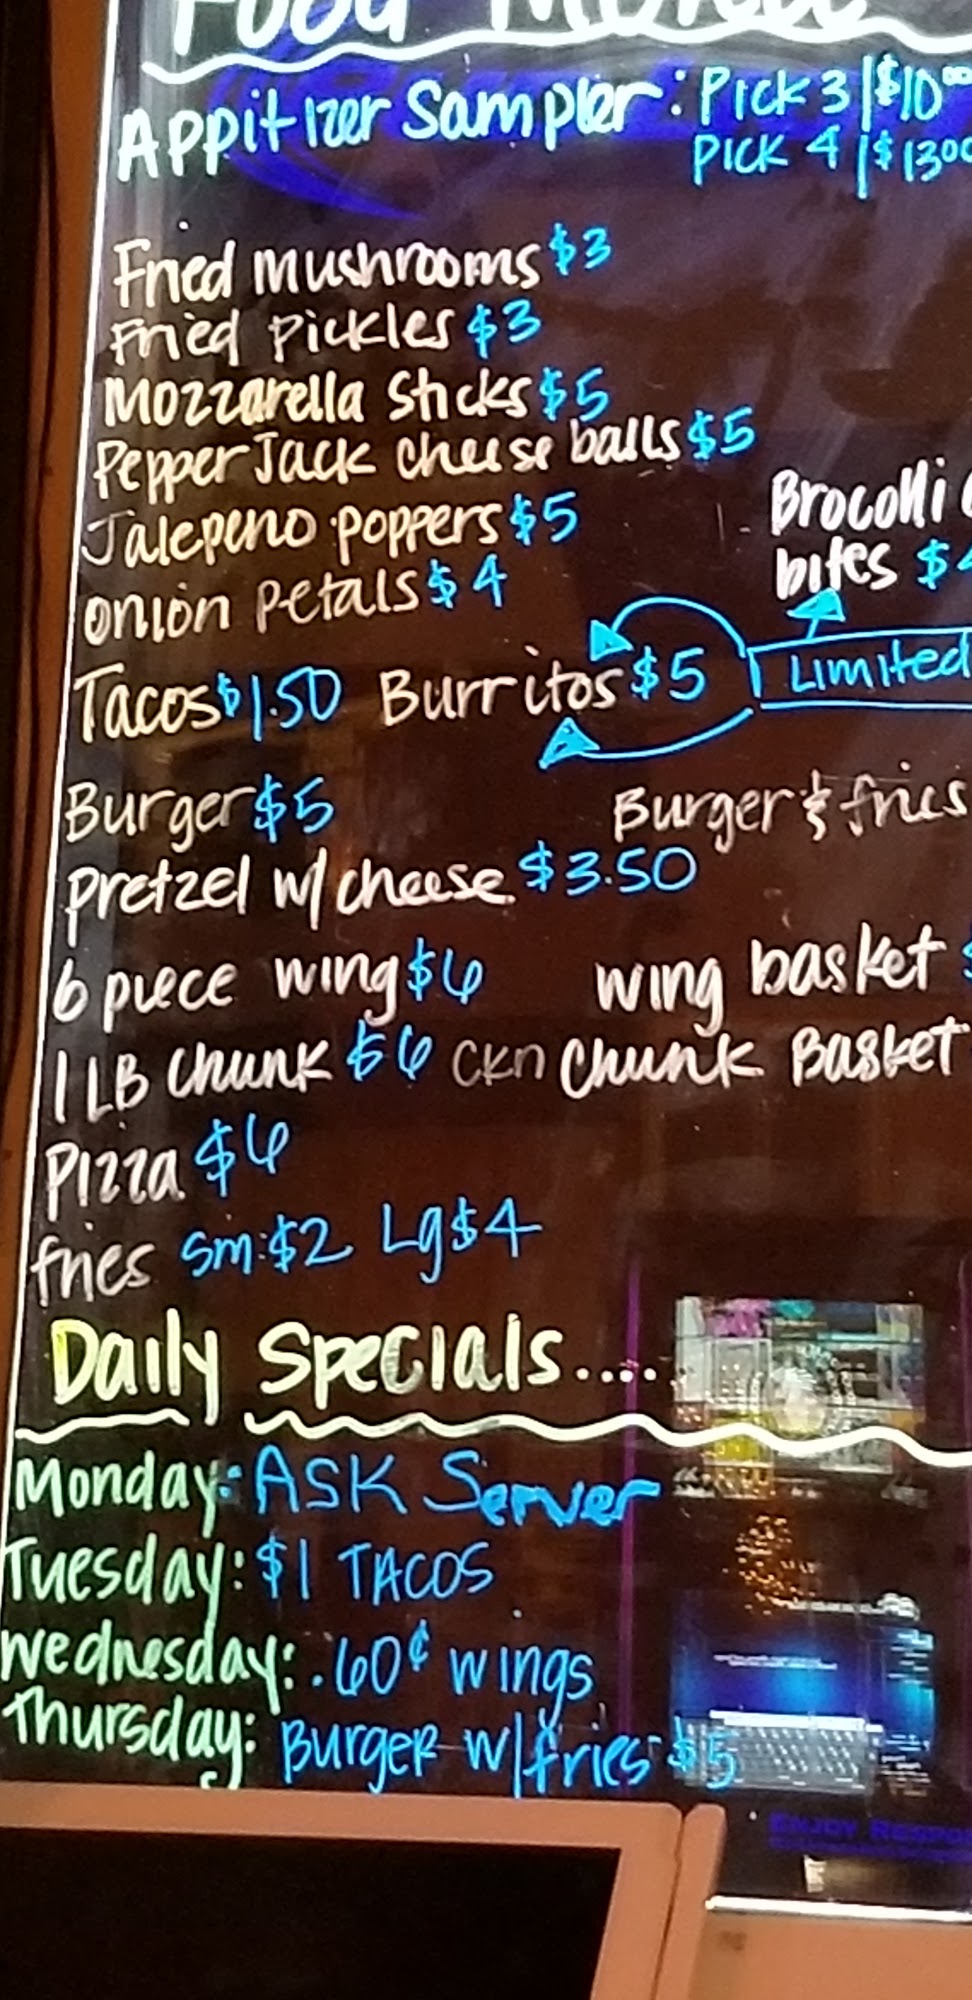 Food
Appitizer Sampler: Pick 3 | $10.00
Pick 4 | $13.00
Fried mushrooms $3
Fried Pickles $3
Mozzarella Sticks $5
Pepper Jack cheese balls $5
Jalepeno poppers $5
Brocolli
bites $4
onion petals $4
Limited
Tacos $1.50 Burritos $5
Burger $5 Burger & fries
Pretzel w/ cheese $3.50
6 piece wing $6 wing basket
1 LB Chunk $6 Ckn Chunk Basket
Pizza $6
fries sm: $2 Lg $4
Daily Specials....
Monday: ASK Server
Tuesday: $1 TACOS
Wednesday: .60¢ wings
Thursday: Burger w/ fries $5
Enjoy